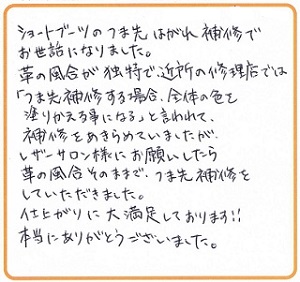 ショートブーツのつま先はがれ補修で
お世話になりました。
革の風合が独特で近所の修理店では
「つま先補修する場合、全体の色を
塗りかえる事になる」と言われて、
補修をあきらめていましたが、
レザーサロン様にお願いしたら
革の風合そのままで、つま先補修を
していただきました。
仕上がりに大満足しております!!
本当にありがとうございました。